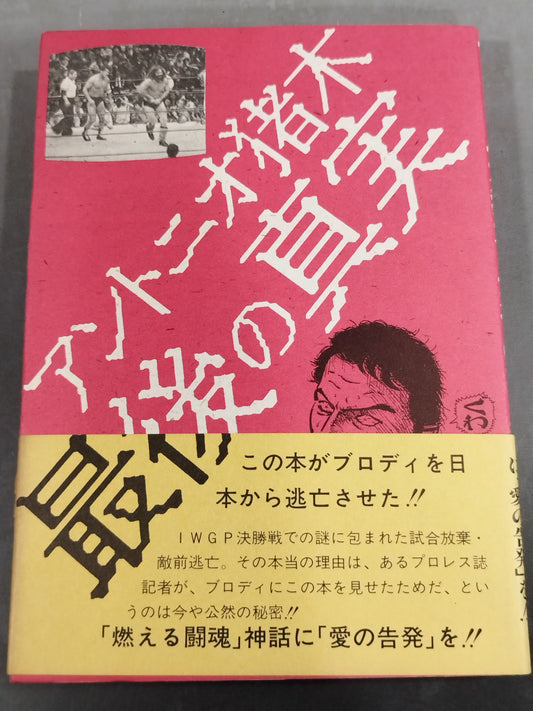 アントニオ猪木
最後の真実
くわっ
この本がブロディを日
本から逃亡させた!!
IWGP決勝戦での謎に包まれた試合放棄・
敵前逃亡。その本当の理由は、あるプロレス誌
記者が、ブロディにこの本を見せたためだ、とい
うのは今や公然の秘密!!
「燃える闘魂」神話に「愛の告発」を!!